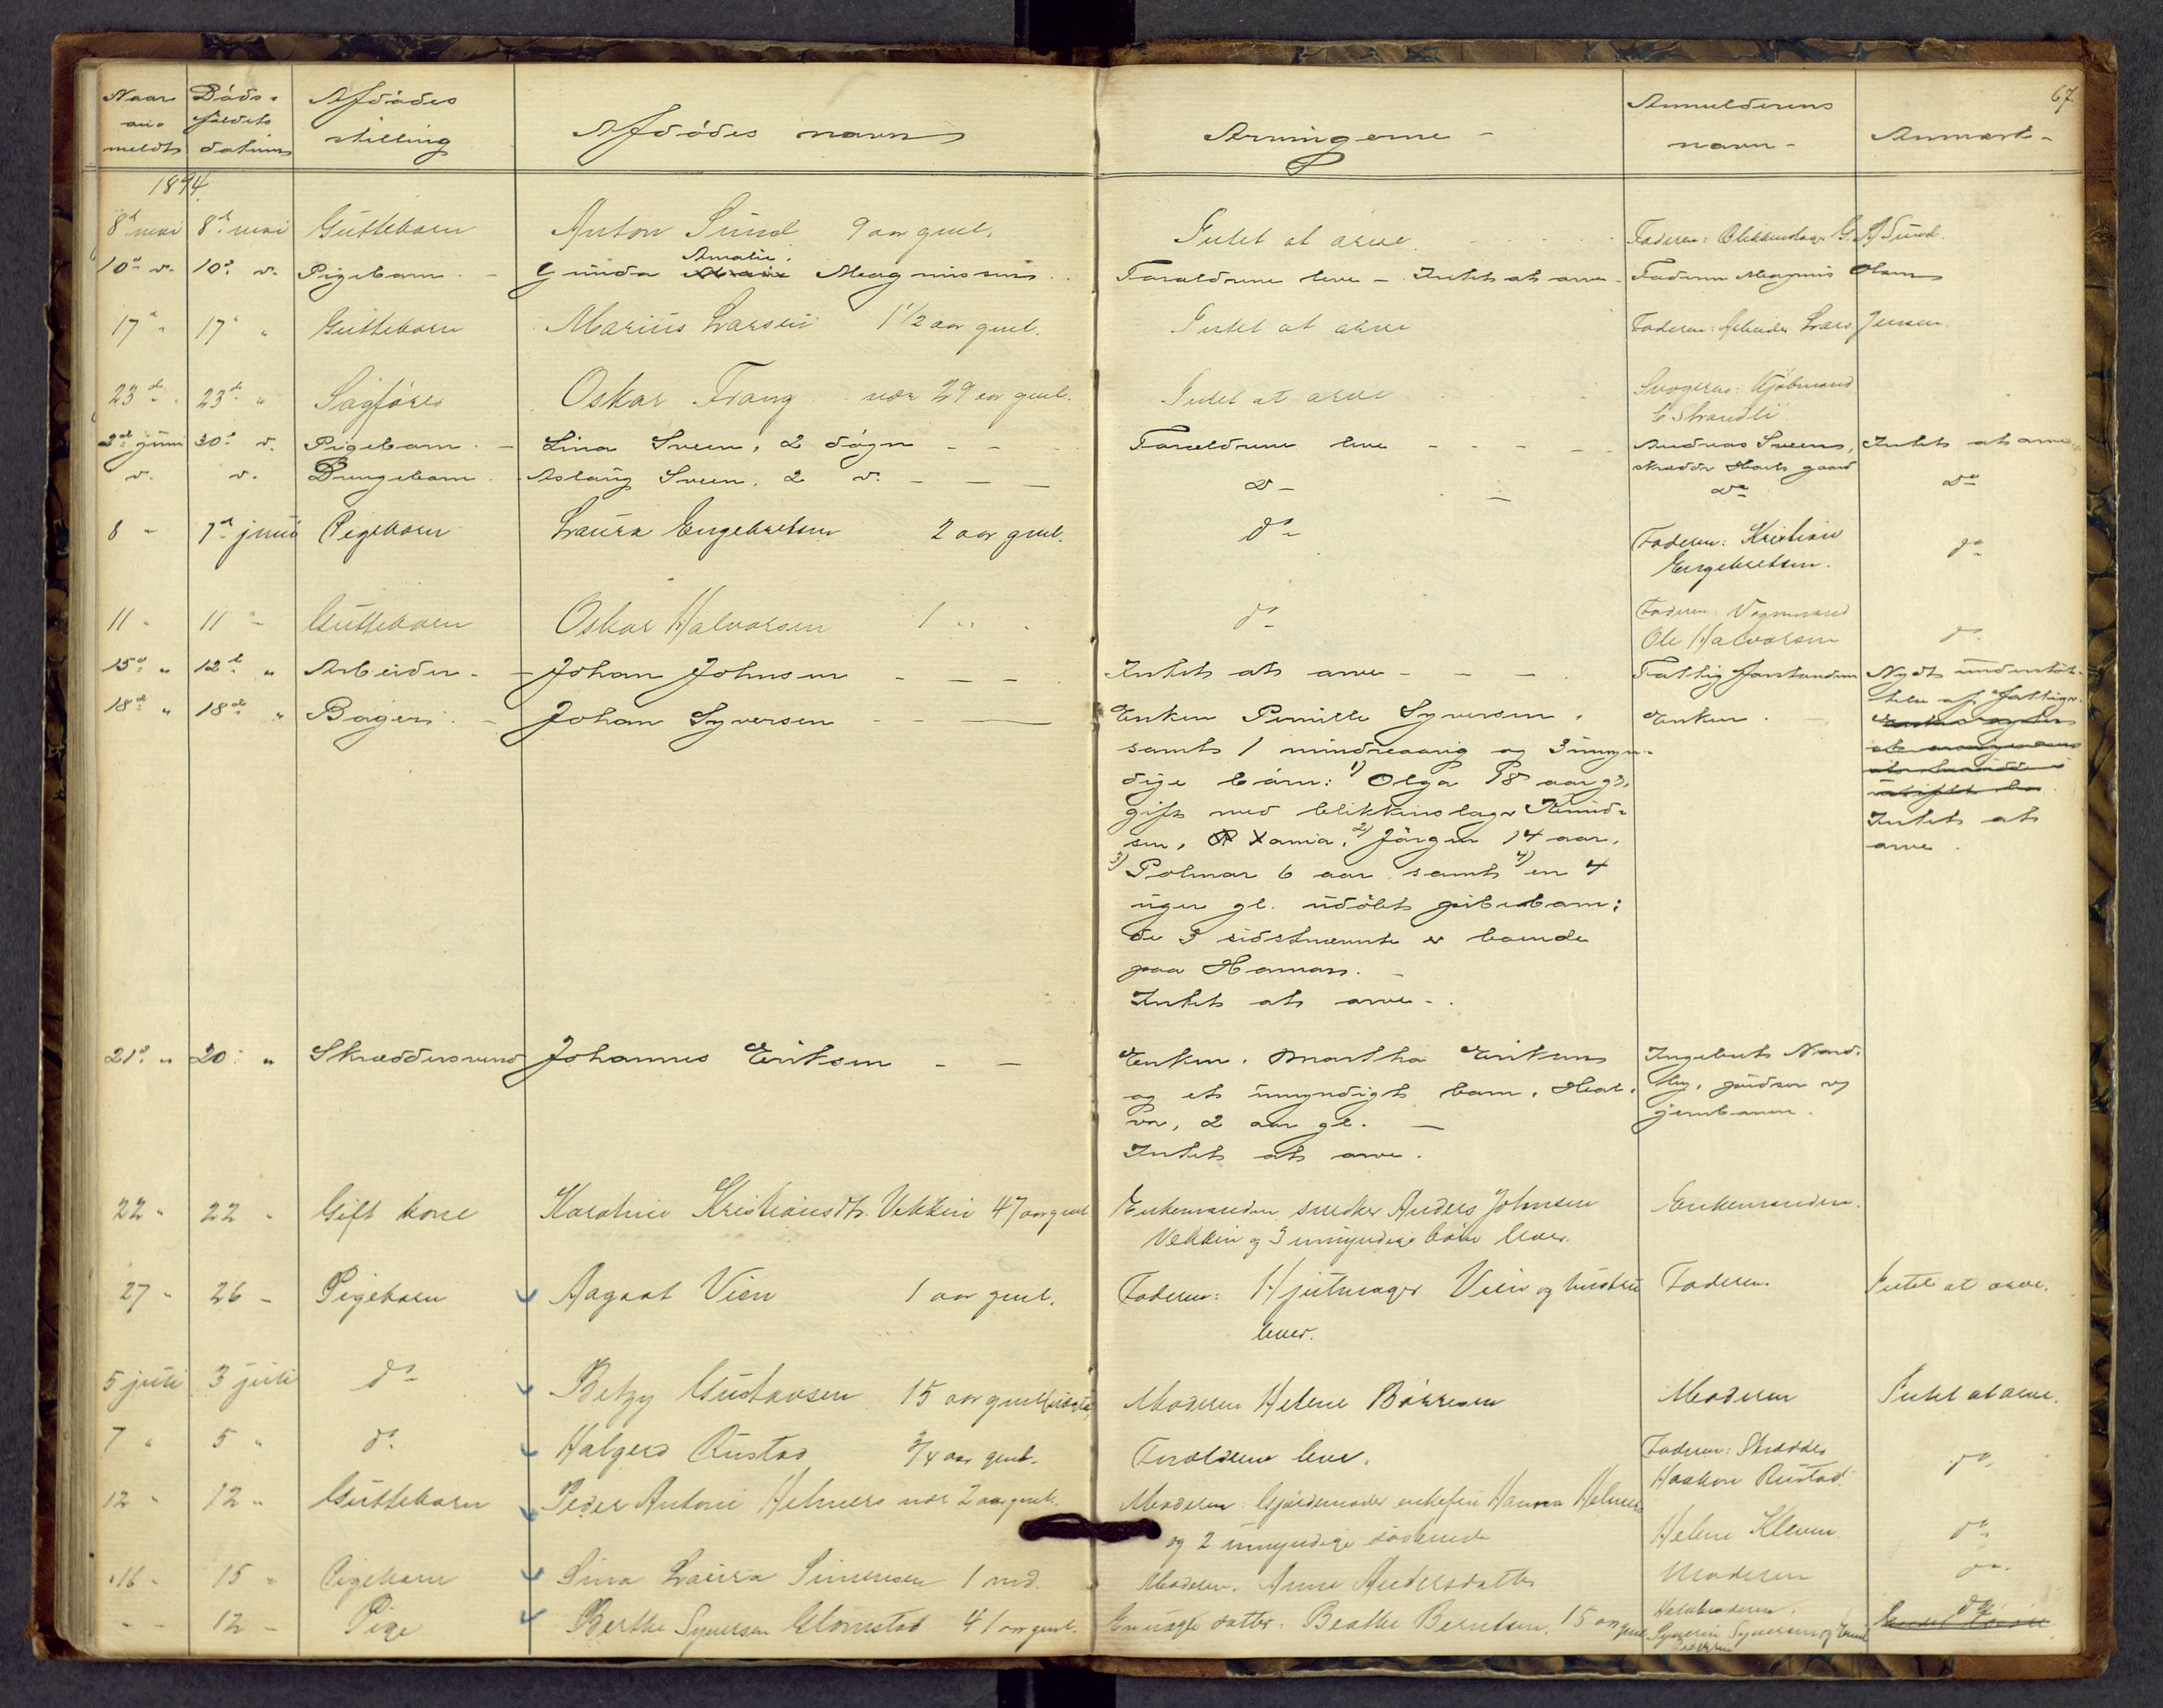 67.
Naar an- meldt Döds- faldets datum Afdödes stilling Afdödes navn Arvingerne - Anmelderens navn - Anmærk-
1894.
8d mai 8d mai Guttebarn Anton Sund 9 aar gml. Intet at arve. Faderen: Blikkenslager G. A. Sund.
Amalie.
10d d. 10d d. Pigebarn. - Gunda Magnussen. Forældrene leve - Intet at arve - Faderen Magnus Olsen
17d " 17d " Guttebarn Marius Larsen 1 1/2 aar gml. Intet at arve Faderen: Arbeider Lars Jensen.
23de " 23de " Sagförer Oskar Frang nær 29 aar gml. Intet at arve Svogeren: Kjöbmand
E Strandli
2d juni 30d d. Pigebarn. - Lina Sveen, 2 dögn - - Forældrene leve - - - Andreas Sveen, Intet at arve
skrædder gaard
d. d. Drengebarn. Aslaug Sveen, 2 d. - - - do - - do do
8 - 7d juni Pigebarn Laura Engebretsen 2 aar gml. do Faderen: Kristian do
Engebretsen.
11 - 11 - Guttebarn Oskar Halvorsen 1 " do Faderen: Vognmand
Ole Halvorsen do
15d " 12d " Arbeider. - Johan Johnsen - - - Intet at arve - - - Fattigforstanderen Nydt understöt-
telse af fattigv.
18de " 18de " Bager. - Johan Syversen - - Enken Pernille Syversen, Enken. -
samt 1 mindreaarig og 3 umyn-
dige börn: 1) Olga 18 aar gl,
gift med blikkenslager Knud-
sen, Xania, 2) Jörgen 14 aar,
3) Polmar 6 aar samt 4) en 4
uger gl. udöbt pigebarn;
de 3 sidstnævnte er boende
paa Hamar. -
Intet at arve - .
Intet at
arve.
21d " 20: " Skræddersvend Johannes Eriksen - - Enken, Martha Eriksen Ingebret Nord-
og et umyndigt barn, Hal- by, pudser v
vor, 2 aar gl. - jernbanen.
Intet at arve.
22 " 22 - Gift kone Karoline Kristiansdtr. Vekken 47 aar gml Enkemanden snedker Anders Johnsen Enkemanden.
Vekken og 3 umyndige börn lever.
27 - 26 - Pigebarn Aagaat Vien 1 aar gml. Faderen: Hjulmager Vien og hustru Faderen Intet at arve.
lever.
5 juli 3 juli do Betzy Gustavsen 15 aar gml (uægte) Moderen Helene Börresen Moderen Intet at arve.
7 " 5 " do Halgerd Rustad 3/4 aar gml. Forældrene leve. Faderen: Skrædder
Haakon Rustad. do
12 - 12 - Guttebarn Peder Antoni Helmers nær 2 aar gml. Moderen: Gjordemoder enkefru Hanna Helmers
og 2 umyndige södskende Helene Kleven do
16 - 15 - Pigebarn Lina Laura Simensen 1 md. Moderen. Anne Andersdatter Moderen do
- - 12 - Pige Berthe Syversen Glomstad 41 aar gml. En uægte datter: Beathe Berntsen. 15 aar gml Halvbroderen. do
Syverin Syversen og Emil
Pedersen